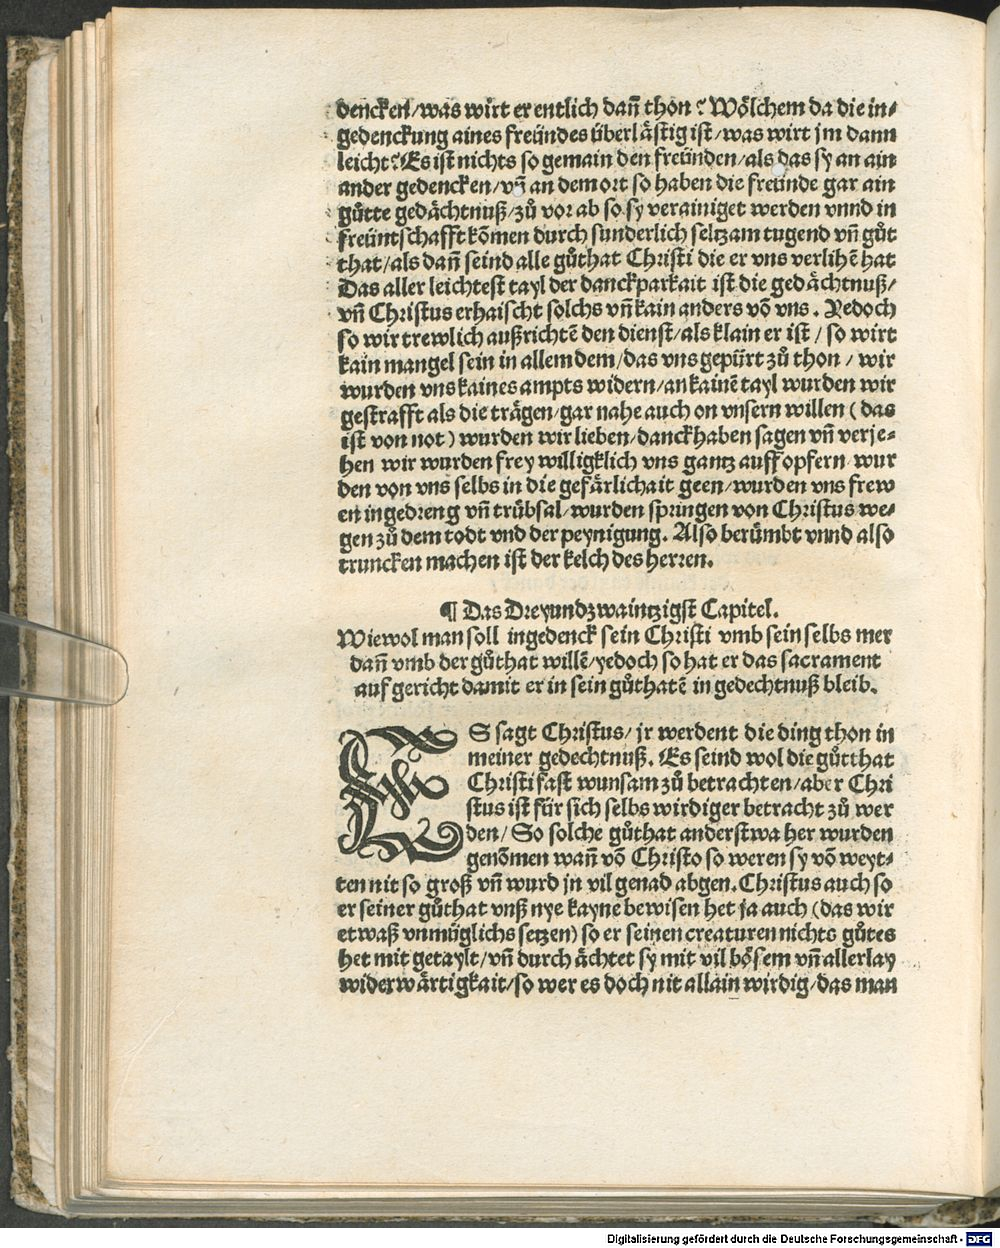 dencken/was wirt er entlich dañ thon? Wölchem da die in-
gedenckung aines freündes überlästig ist/was wirt jm dann
leicht? Es ist nichts so gemain den freünden/als das sy an ain
ander gedencken/vñ an dem ort so haben die freünde gar ain
gůtte gedächtnuß/zů vor ab so sy verainiget werden vnnd in
freüntschafft kõmen durch sunderlich seltzam tugend vñ gůt
that/als dañ seind alle gůthat Christi die er vns verlihẽ hat
Das aller leichtest tayl der danckparkait ist die gedächtnuß/
vñ Christus erhaischt solchs vñ kain anders võ vns. Yedoch
so wir trewlich außrichtẽ den dienst/als klain er ist/so wirt
kain mangel sein in allem dem/das vns gepürt zů thon/wir
wurden vns kaines ampts widern/an kainẽ tayl wurden wir
gestrafft als die trägen/gar nahe auch on vnsern willen (das
ist von not) wurden wir lieben/danck haben sagen vñ verje-
hen wir wurden frey willigklich vns gantz auff opfern wur
den von vns selbs in die gefärlichait geen/wurden vns frew
en in gedreng vñ trübsal/wurden springen von Christus we-
gen zů dem todt vnd der peynigung. Also berümbt vnnd also
truncken machen ist der kelch des herren.
¶ Das Dreyundzwaintzigst Capitel.
Wiewol man soll ingedenck sein Christi vmb sein selbs mer
dañ vmb der gůthat willẽ/yedoch so hat er das sacrament
auf gericht damit er in sein gůthatẽ in gedechtnuß bleib.
ES sagt Christus/jr werdent die ding thon in
meiner gedechtnuß. Es seind wol die gůtthat
Christi fast wunsam zů betrachten/aber Chri
stus ist für sich selbs wirdiger betracht zů wer
den/So solche gůthat anderstwa her wurden
genõmen wañ võ Christo so weren sy võ weyt-
ten nit so groß vñ wurd jn vil genad abgen. Christus auch so
er seiner gůthat vnß nye kayne bewisen het ja auch (das wir
etwaß vnmüglichs setzen) so er seinen creaturen nichts gůtes
het mit getaylt/vñ durch ächtet sy mit vil bösem vñ allerlay
widerwärtigkait/so wer es doch nit allain wirdig/das man
Digitalisierung gefördert durch die Deutsche Forschungsgemeinschaft - DFG